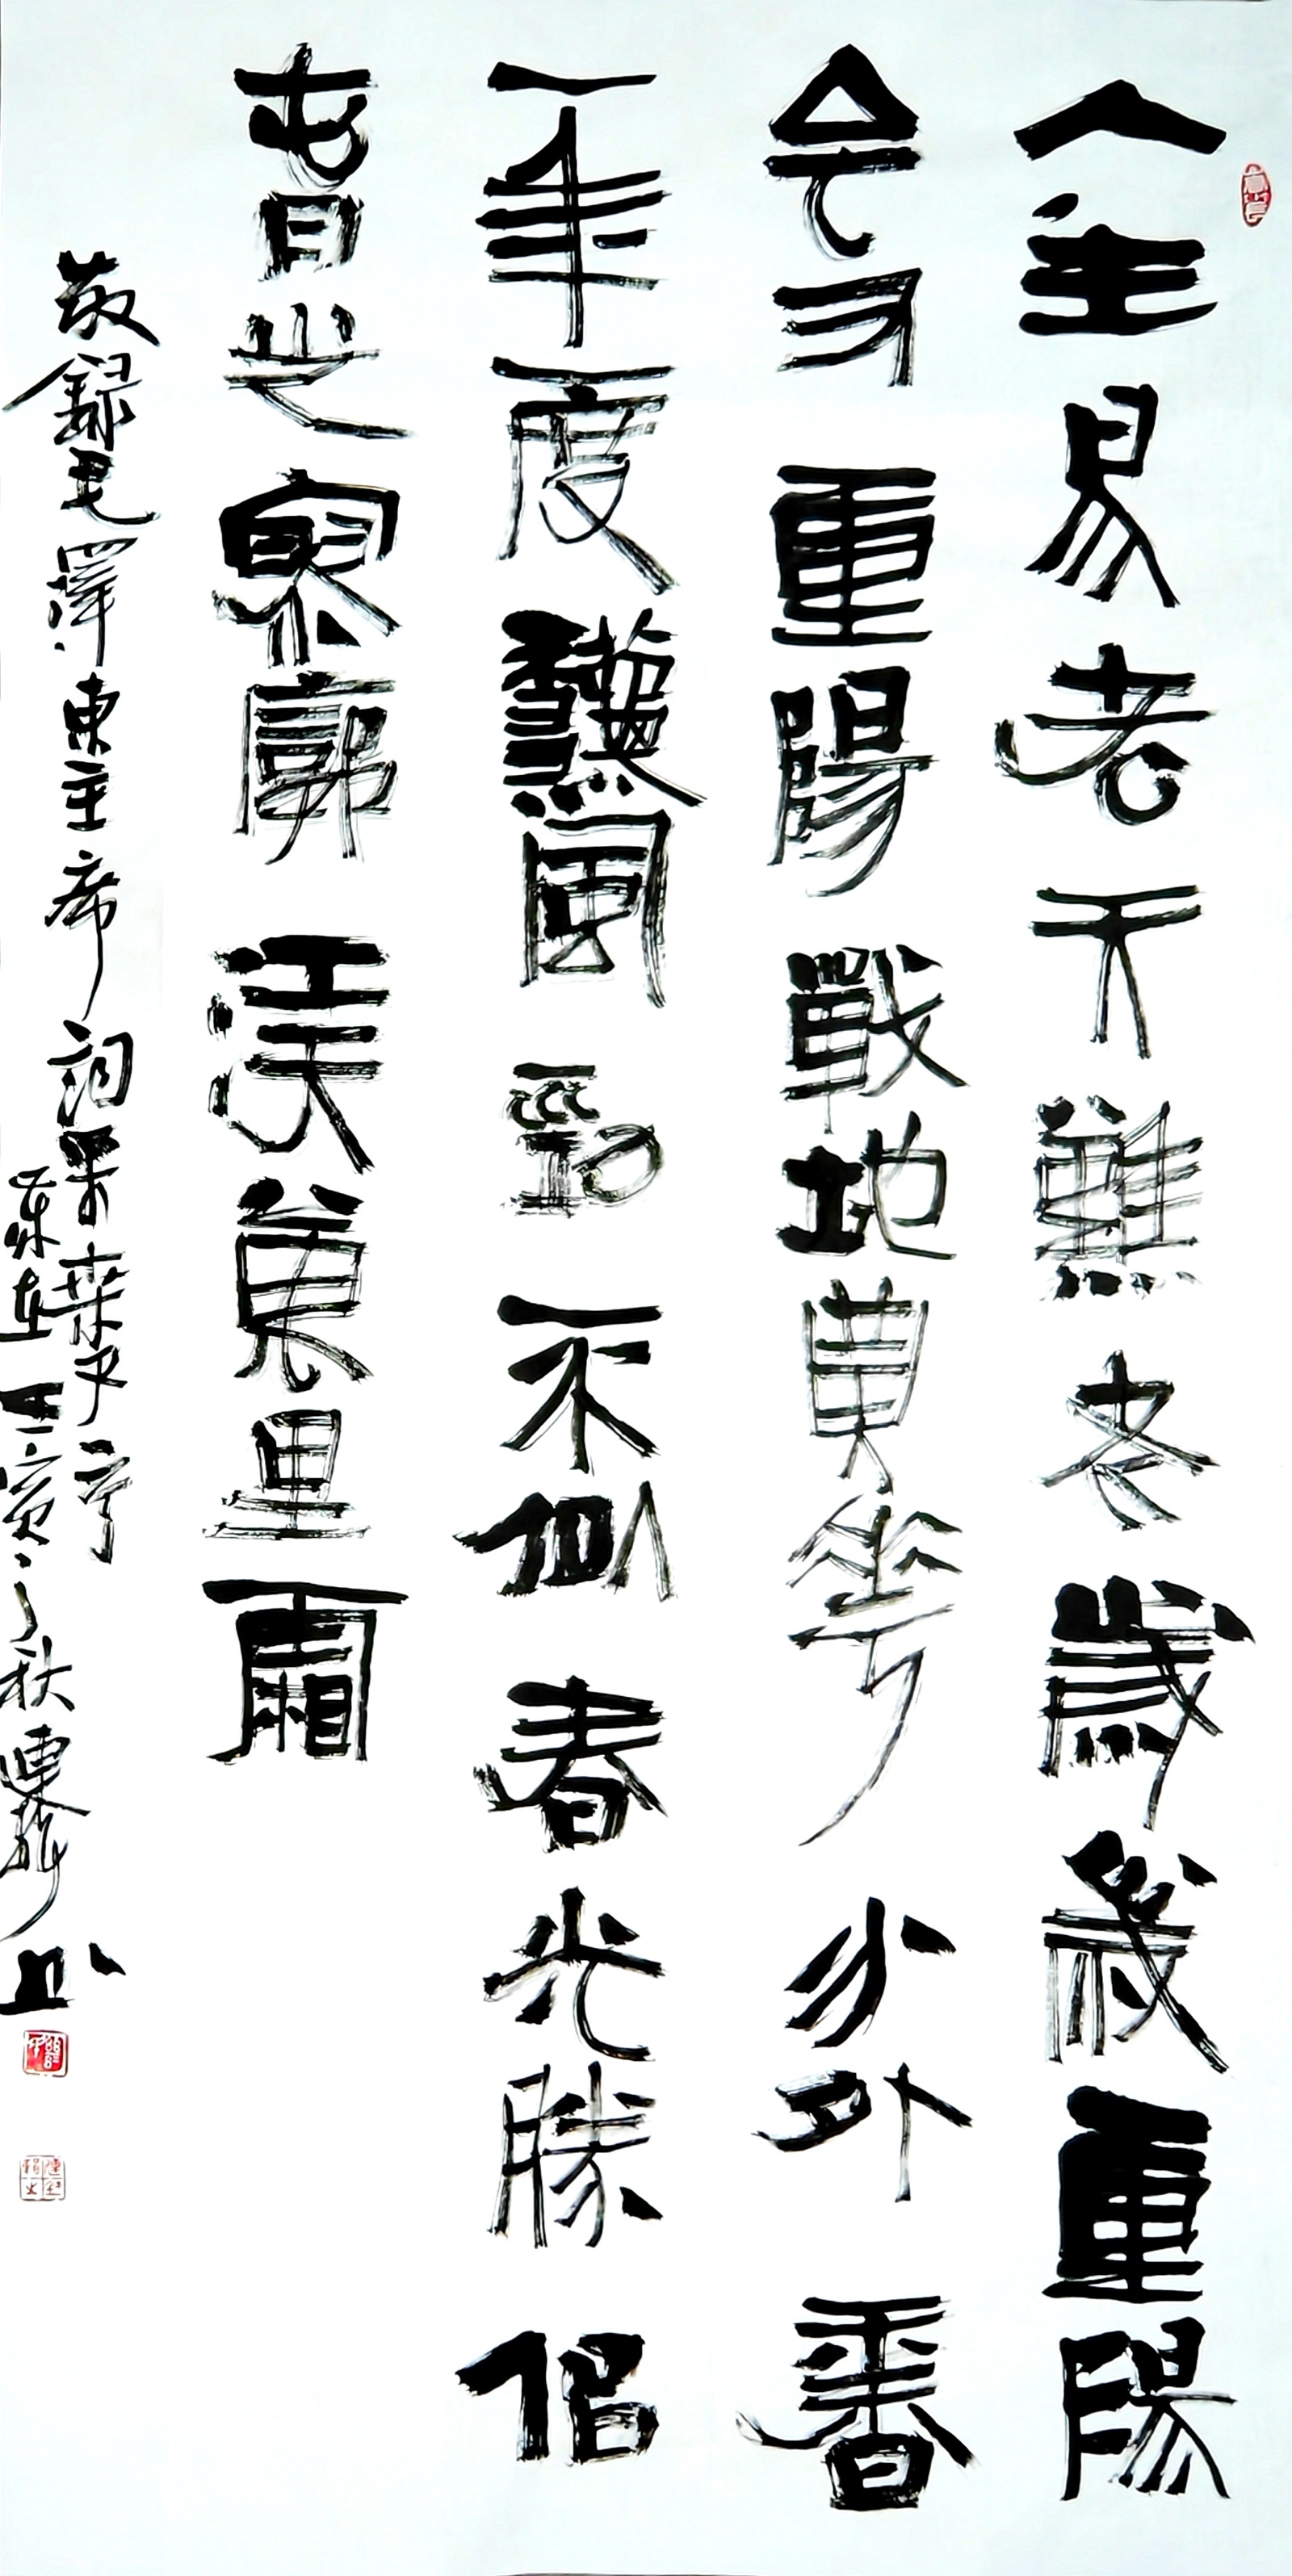 人生易老天難老歲歲重陽
今又重陽戰地黃花分外香
一年一度秋風勁不似春光勝似
春光寥廓江天萬里霜
敬錄毛澤東主席詞采桑子
壬寅之秋